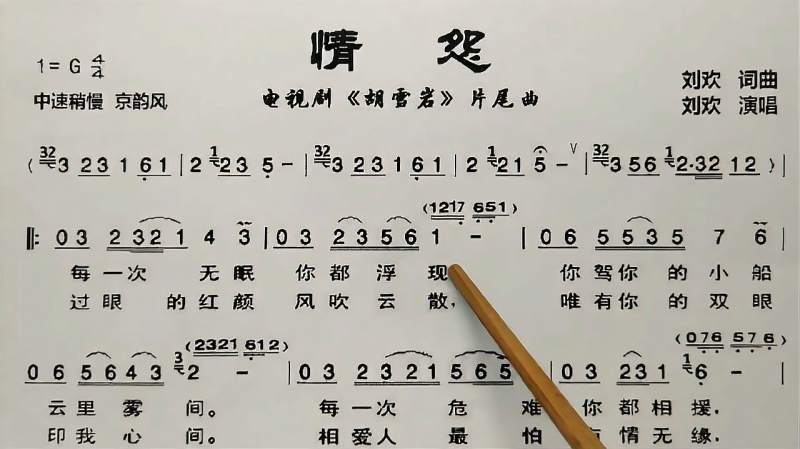 情 怨
1=G 4/4
中速稍慢 京韵风
电视剧《胡雪岩》片尾曲
刘欢 词曲
刘欢 演唱
(32 3 2 3 1 6 1 | 2 1 2 3 5 - | 32 3 2 3 1 6 1 | 2 1 2 1 5 - ∨ | 32 3 5 6 1 2·3 2 1 2)
(1217 651)
‖: 0 3 2 3 2 1 4 3 | 0 3 2 3 5 6 1 - | 0 6 5 5 3 5 7 6
每一次 无眠 你都浮现 你驾你的小船
过眼的红颜 风吹云散, 唯有你的双眼
(2321 612) (076 576)
0 6 5 6 4 3 3 2 - | 0 3 2 3 2 1 5 6 5 | 0 3 2 3 1 1 6 -
云里雾间。 每一次危难 你都相援,
印我心间。 相爱人最怕 情无缘,